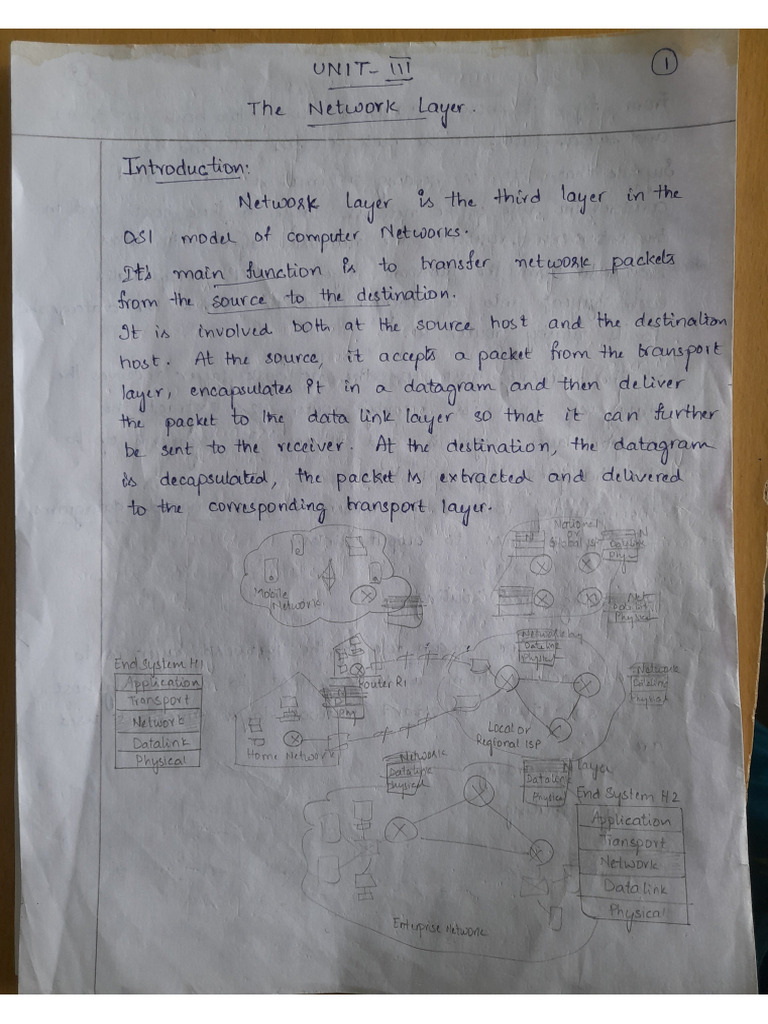 UNIT- III
1
The Network Layer.
Introduction:
Network layer is the third layer in the
OSI model of computer Networks.
It's main function is to transfer network packets
from the source to the destination.
It is involved both at the source host and the destination
host. At the source, it accepts a packet from the transport
layer, encapsulates it in a datagram and then deliver
the packet to the data link layer so that it can further
be sent to the receiver. At the destination, the datagram
is decapsulated, the packet is extracted and delivered
to the corresponding transport layer.
Mobile
Network
National
or
Global ISP
N
N
Datalink
Phy
Net
Physical
End System H1
Application
Transport
Network
Datalink
Physical
Router R1
Home Network
Network lay
Datalink
Physical
Network
Datalink
Physical
Local or
Regional ISP
Network
Datalink
Physical
N layer
Datalink
Physical
End System H2
Application
Transport
Network
Datalink
Physical
Enterprise Network